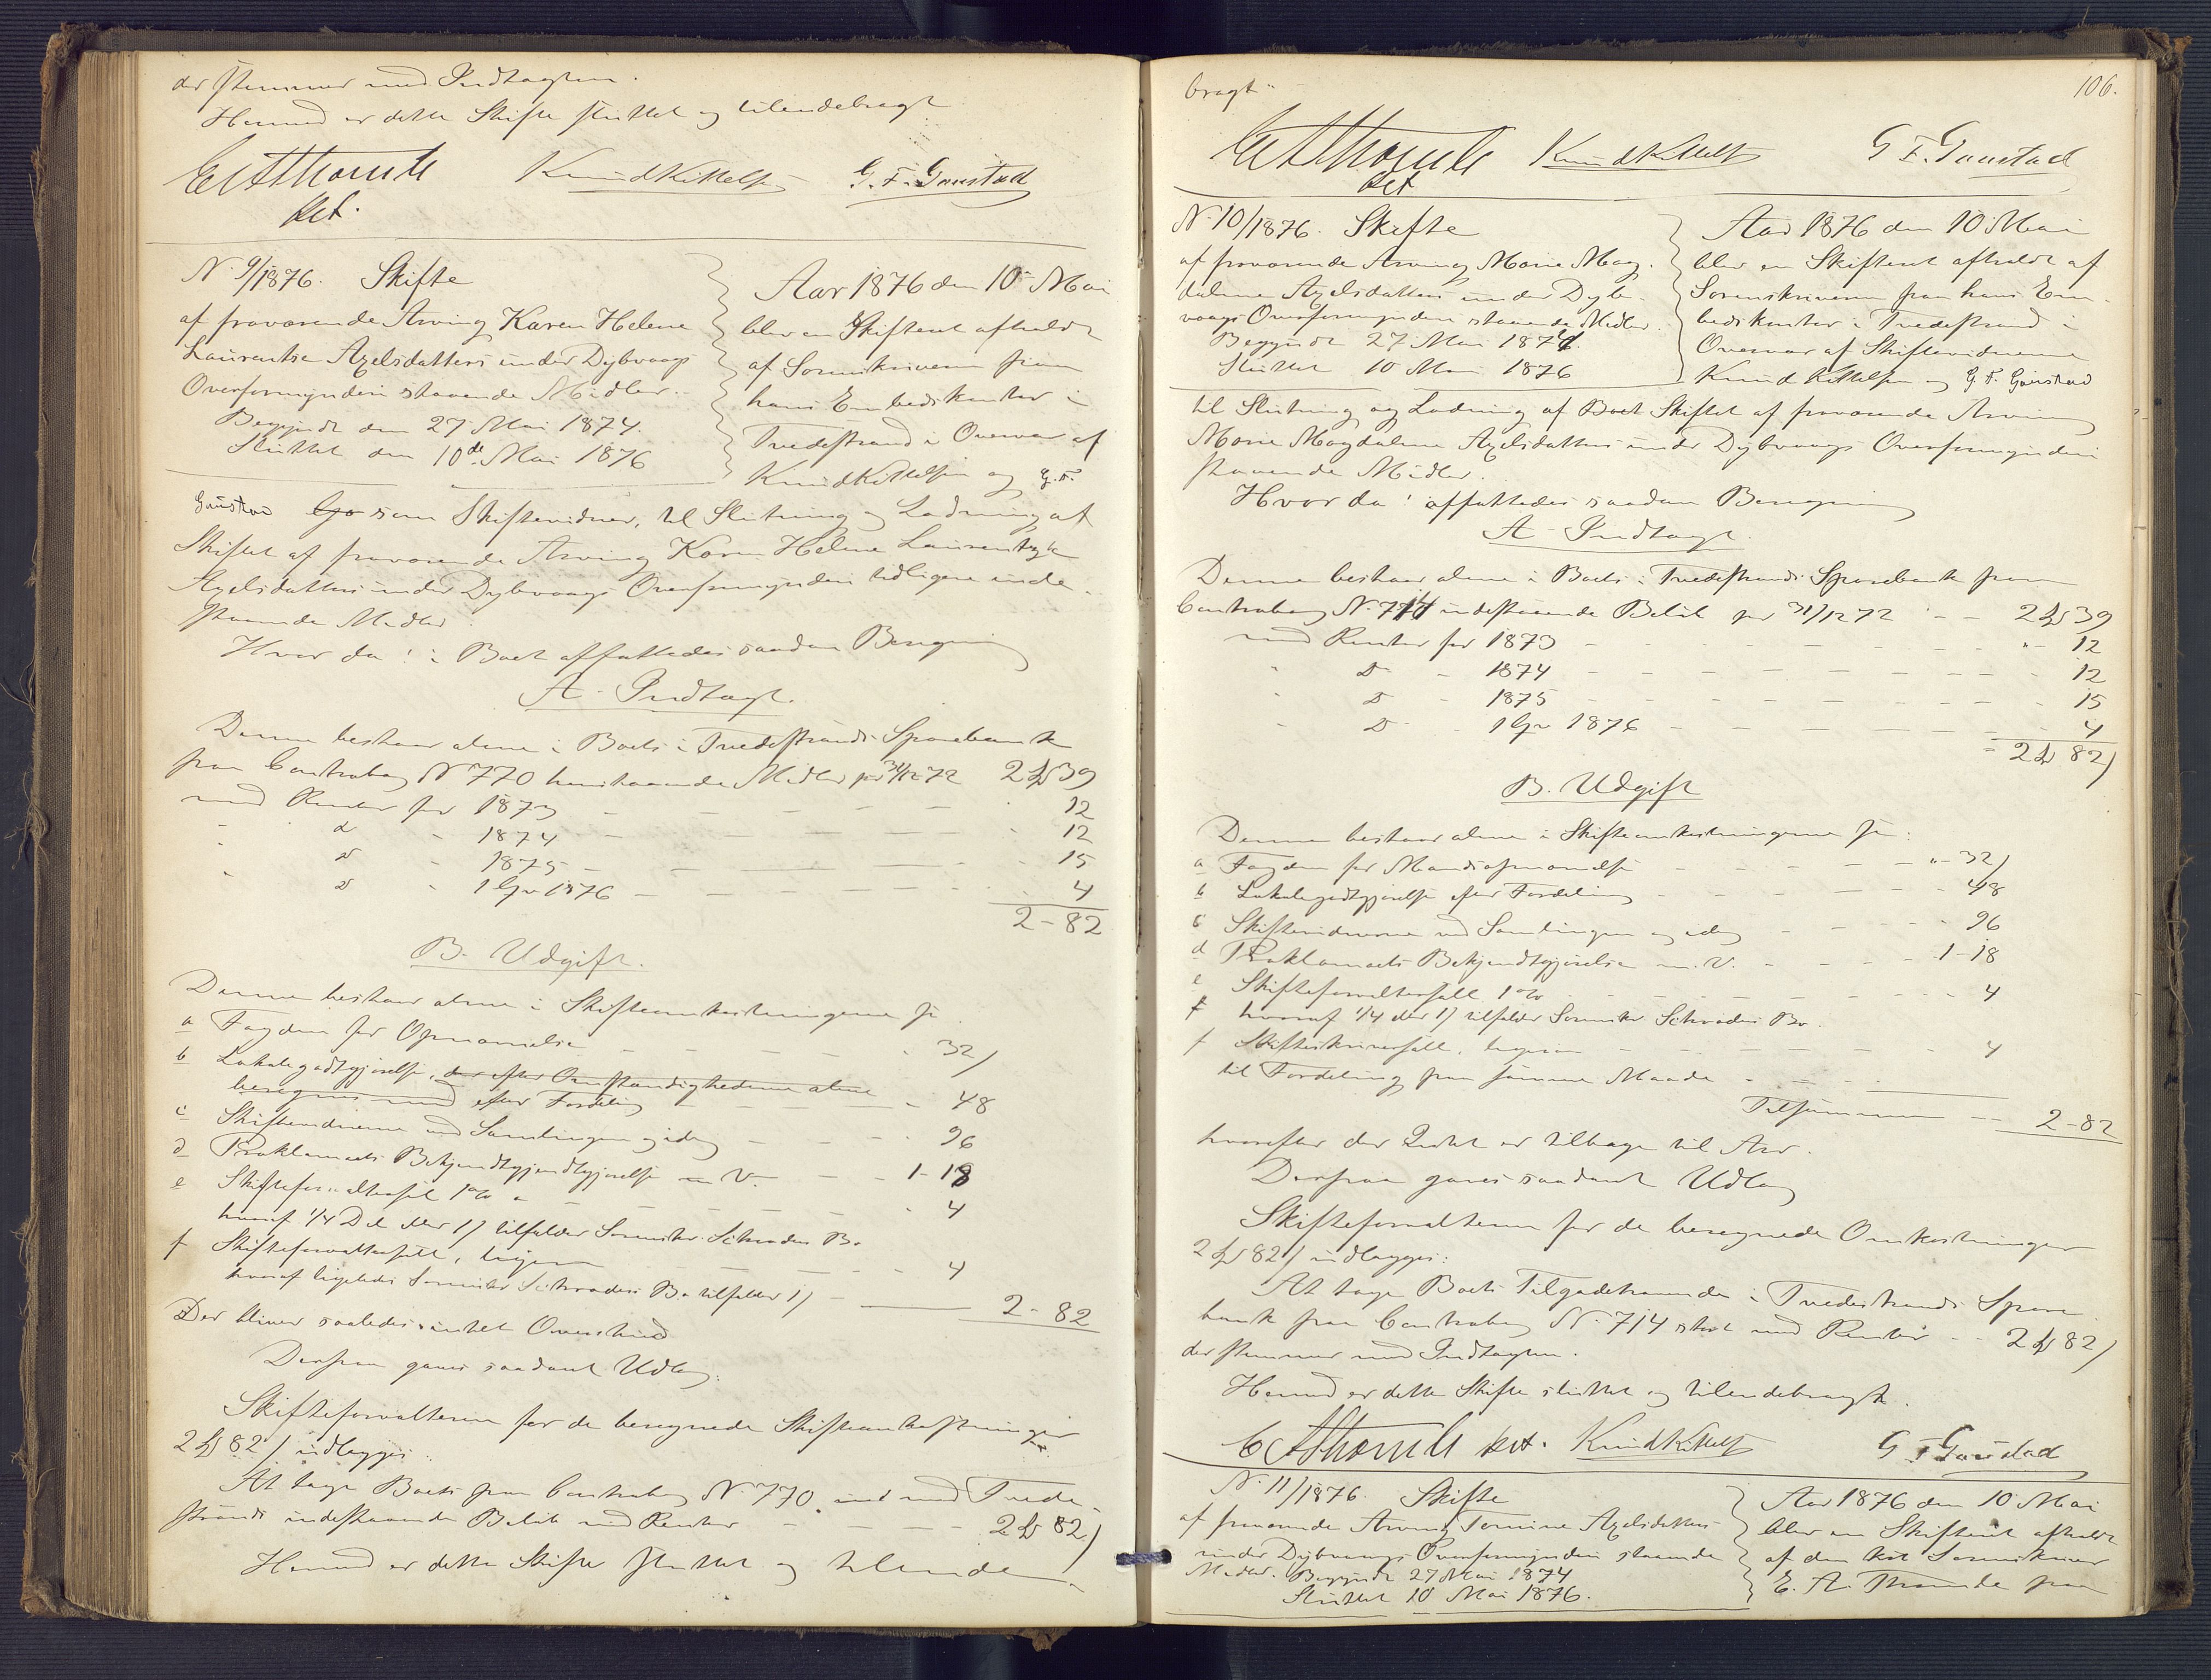 der stemmer med Indtægten.
Hermed er dette Skifte sluttet og tilendebragt
EAThomle Knud Kittelsen G. F. Goustad
kst.
N. 9/1876. Skifte
af fraværende Arving Karen Helene
Laurentse Axelsdatters under Dybvaags
Overformynderi staaende Midler.
Begyndt den 27 Mai 1874.
Sluttet den 10de Mai 1876
Aar 1876 den 10 Mai
blev en Skifteret afholdt
af Sorenskriveren paa
hans Embedskontor i
Tvedestrand i Overvær af
Knud Kittelsen og G. F.
Goustad som Skiftevidner, til Slutning og Lodning af
Skiftet af fraværende Arving Karen Helene Laurentze
Axelsdatters under Dybvaags Overformynderi tidligere inde-
staaende Midler.
Hvor da! i Boet affattedes saadan Beregning
A - Indtægt.
Denne bestaar alene i Boets i Tvedestrands Sparebank
paa Contrabog N 770 henstaaende Midler pr 31/12 72 2 Spd 39
med Renter for 1873 - - - 12
" d - 1874 - - - 12
d - 1875 - - - 15
" d - 1 Qr 1876 - - - 4
2 - 82
B. Udgift.
Denne bestaar alene i Skifteomkostningerne
a Fogden for Opnævnelse - - 32)
b Lokalegodtgjørelse, der efter Omstændighederne alene
beregnes med efter Fordeling - - 48
c Skiftevidnerne ved Samlingen idag - - 96
d Proklamaets Bekjendtgjendtgjørelse m. V. - - 1-18
e Skifteforvaltersall 1% - - 4
hvoraf 1/4 Del eller 1) tilfalder Sorenskr. Schrøders Bo
f Skifteforvaltersall, ligesaa - - 4
hvoraf ligeledes Sorenskr Schrøders Bo tilfalder 1) - 2 - 82
Der bliver saaledes intet Overskud
Derpaa gaves saadant Udlæg:
Skifteforvalteren for de beregnede Skifteomkostninger
2 Spd 82) udlægges:
At tage Boets paa Contrabog N 770 ved Tvede-
strands indestaaende Beløb med Renter - - 2 Spd 82)
Hermed er dette Skifte sluttet og tilende-
106.
bragt "
EAThomle Knud Kittelsen G F. Goustad
kst
N. 10/1876. Skifte
af fraværende Arving Maren Mag-
dalene Axelsdatters under Dybe-
vaags Overformynderi staaende Midler.
Begyndt 27 Mai 1874.
Sluttet 10 Mai 1876
Aar 1876 den 10 Mai
blev en Skifteret afholdt af
Sorenskriveren paa hans Em-
bedskontor i Tvedestrand i
Overvær af Skiftevidnerne
Knud Kittelsen og G. F. Goustad
til Slutning og Lodning af Boet Skiftet af fraværende Arving
Maren Magdalene Axelsdatters under Dybvaags Overformynderi
staaende Midler.
Hvor da! affattedes saadan Beregning
A - Indtægt.
Denne bestaar alene i Boets i Tvedestrands Sparebank paa
Contrabog N. 714 indestaaende Beløb pr 31/12 72 - - 2 Spd 39
med Renter for 1873 - - - 12
" D - 1874 - - - 12
D - 1875 - - - 15
" D - 1 Qr 1876 - - - 4
2 Spd 82)
B. Udgift
Denne bestaar alene i Skifteomkostningerne
a Fogden for Mandsopnævnelse - - "-32)
b Lokalegodtgjørelse efter Fordeling - - 48
c Skiftevidnerne ved Samlingen idag - - 96
d Proklamaets Bekjendtgjørelse m. V. - - 1-18
e Skifteforvaltersall 1% - - 4
hvoraf 1/4 eller 1) tilfalder Sorenskr Schrøders Bo.
f Skifteskriversall, ligesaa - - 4
til Fordeling paa samme Maade
Tilsammen - - 2-82
hvorefter der Intet er tilbage til Arv.
Derpaa gaves saadant Udlæg
Skifteforvalteren for de beregnede Omkostninger
2 Spd 82) udlægges:
At tage Boets Tilgodehavende i Tvedestrands Spare
bank paa Contrabog N. 714 stort med Renter - - 2 Spd 82)
der stemmer med Indtægten.
Hermed er dette Skifte sluttet og tilendebragt.
EAThomle kst. Knud Kittelsen G F Goustad
N. 11/1876. Skifte
af fraværende Arving Tomine Axelsdatters
under Dybvaags Overformynderi staaende
Midler. Begyndt 27 Mai 1874
Sluttet 10 Mai 1876.
Aar 1876 den 10 Mai
blev en Skifteret afholdt
af den kst Sorenskriver
E. A. Thomle paa